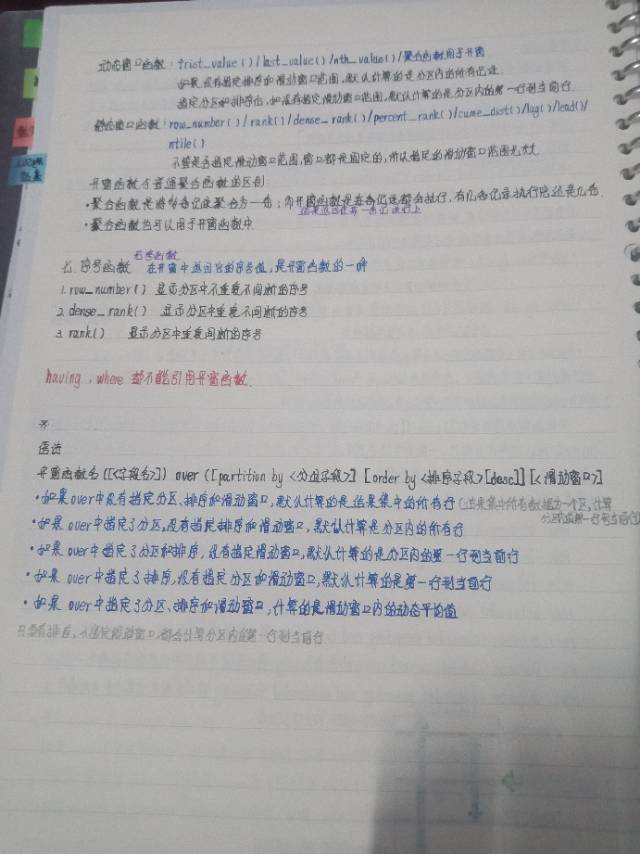 动态窗口函数：frist_value()/last_value()/nth_value()/聚合函数用于开窗
如果没有指定排序和滑动窗口范围，默认计算的是分区内的所有记录.
指定分区和排序后，如没有指定滑动窗口范围，默认计算的是分区内的第一行到当前行.
静态窗口函数：row_number()/rank()/dense_rank()/percent_rank()/cume_dist()/lag()/lead()/
ntile()
不管是否指定滑动窗口范围，窗口都是固定的，所以指定的滑动窗口范围无效
开窗函数与普通聚合函数的区别：
·聚合函数是将多条记录聚合为一条；而开窗函数是在每条记录都会执行，有几条记录执行完还是几条.
·聚合函数也可以用于开窗函数中.
七.序号函数 在开窗中返回它的序号值，是开窗函数的一种
1.row_number() 显示分区中不重复不间断的序号
2.dense_rank() 显示分区中重复不间断的序号
3.rank() 显示分区中重复间断的序号
having、where 都不能引用开窗函数.
语法
开窗函数名([<字段名>]) over ([partition by <分组字段>] [order by <排序字段>[desc]] [<滑动窗口>]
·如果over中没有指定分区、排序和滑动窗口，默认计算的是结果集中的所有行
·如果over中指定了分区，没有指定排序和滑动窗口，默认计算是分区内的所有行
·如果over中指定了分区和排序，没有指定滑动窗口，默认计算的是分区内的第一行到当前行
·如果over中指定了排序，没有指定分区和滑动窗口，默认计算的是第一行到当前行
·如果over中指定了分区、排序和滑动窗口，计算的是滑动窗口内的动态平均值